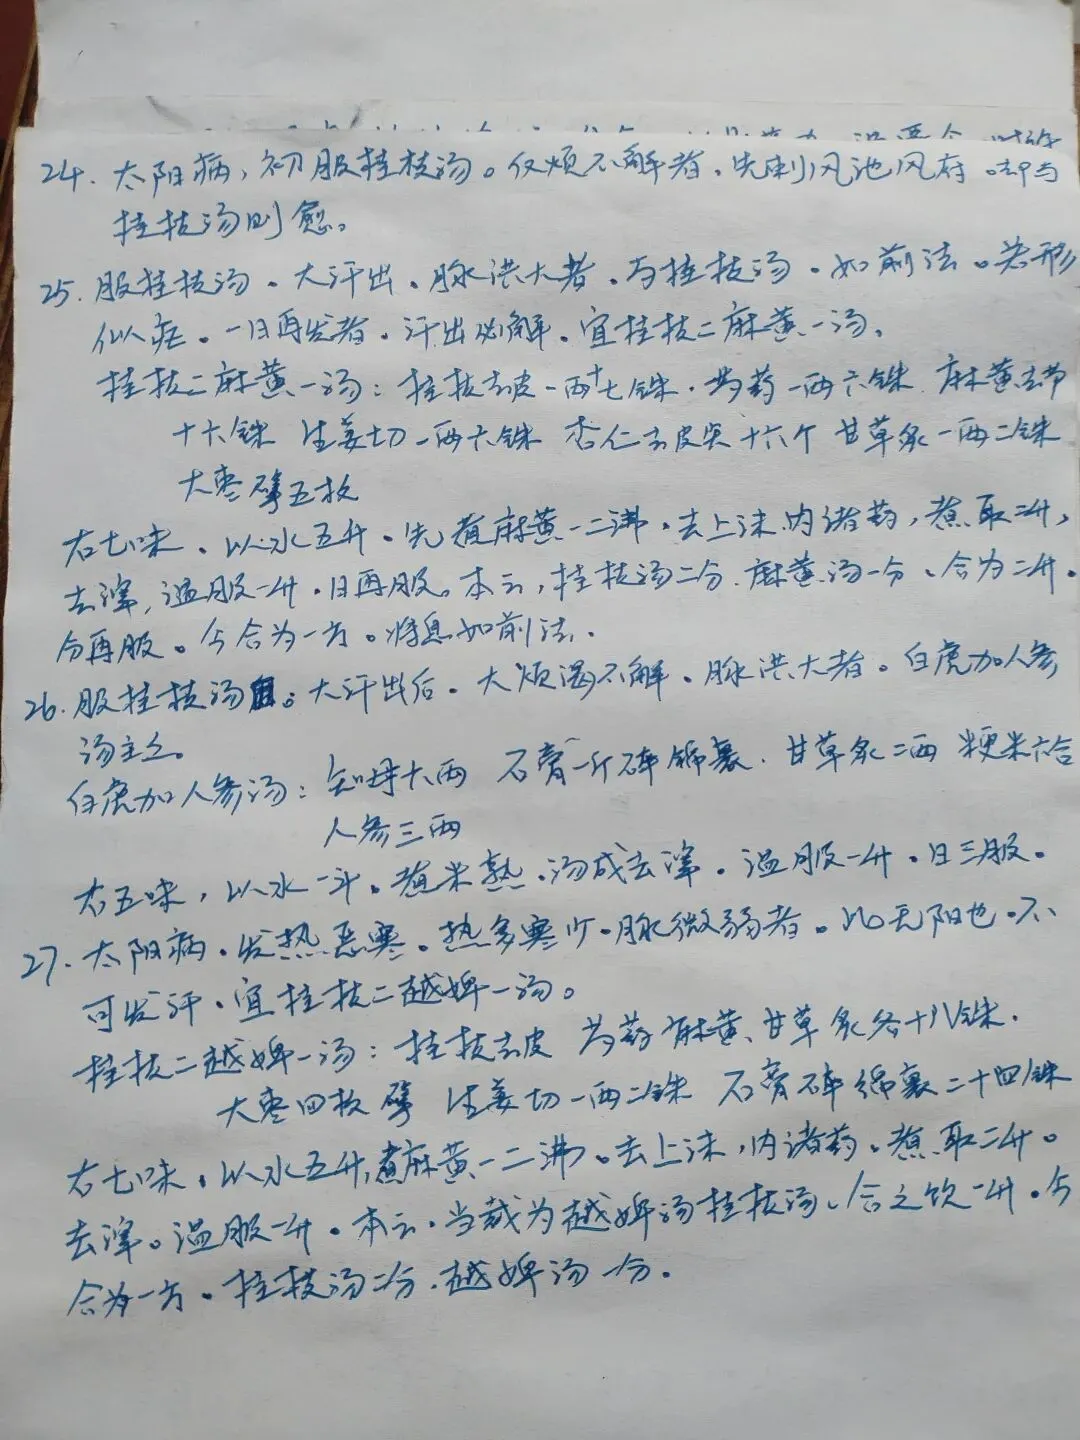 24. 太阳病，初服桂枝汤。仅烦不解者，先刺风池风府。却与
桂枝汤则愈。
25. 服桂枝汤，大汗出，脉洪大者，与桂枝汤，如前法。若形
似疟。一日再发者，汗出必解，宜桂枝二麻黄一汤。
桂枝二麻黄一汤：桂枝去皮一两十七铢．芍药一两六铢 麻黄去节
十六铢 生姜切一两六铢 杏仁去皮尖十六个 甘草炙一两二铢
大枣擘五枚
右七味，以水五升，先煮麻黄一二沸，去上沫，内诸药，煮取二升，
去滓，温服一升，日再服。本云，桂枝汤二分、麻黄汤一分、合为二升。
分再服。今合为一方。将息如前法．
26. 服桂枝汤。大汗出后，大烦渴不解、脉洪大者。白虎加人参
汤主之。
白虎加人参汤：知母六两 石膏一斤碎绵裹．甘草炙二两 粳米六合
人参三两
右五味，以水一斗。煮米熟．汤成去滓。温服一升．日三服。
27. 太阳病．发热恶寒。热多寒少．脉微弱者。此无阳也．不
可发汗．宜桂枝二越婢一汤。
桂枝二越婢一汤：桂枝去皮 芍药 麻黄、甘草炙各十八铢．
大枣四枚擘 生姜切一两二铢 石膏碎绵裹二十四铢
右七味，以水五升，煮麻黄一二沸。去上沫，内诸药。煮取二升。
去滓。温服一升．本云．当裁为越婢汤桂枝汤、合之饮一升．今
合为一方．桂枝汤二分．越婢汤一分．